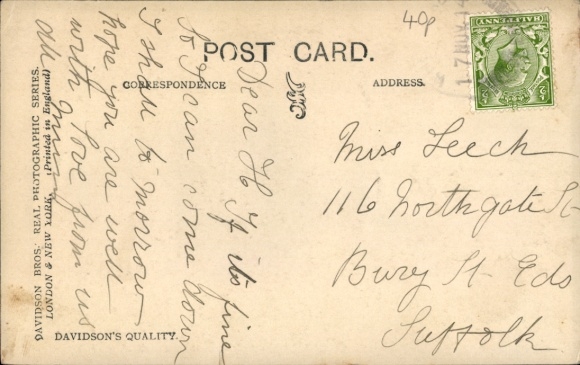 40p
POST CARD.
CORRESPONDENCE
ADDRESS.
HALFPENNY
Dear H If its fine
So I can come down
I shall to morrow
hope you are well
with love from us
all
Miss Leech
116 Northgate St
Bury St Eds
Suffolk
DAVIDSON BROS. REAL PHOTOGRAPHIC SERIES.
LONDON & NEW YORK. (Printed in England)
DAVIDSON'S QUALITY.